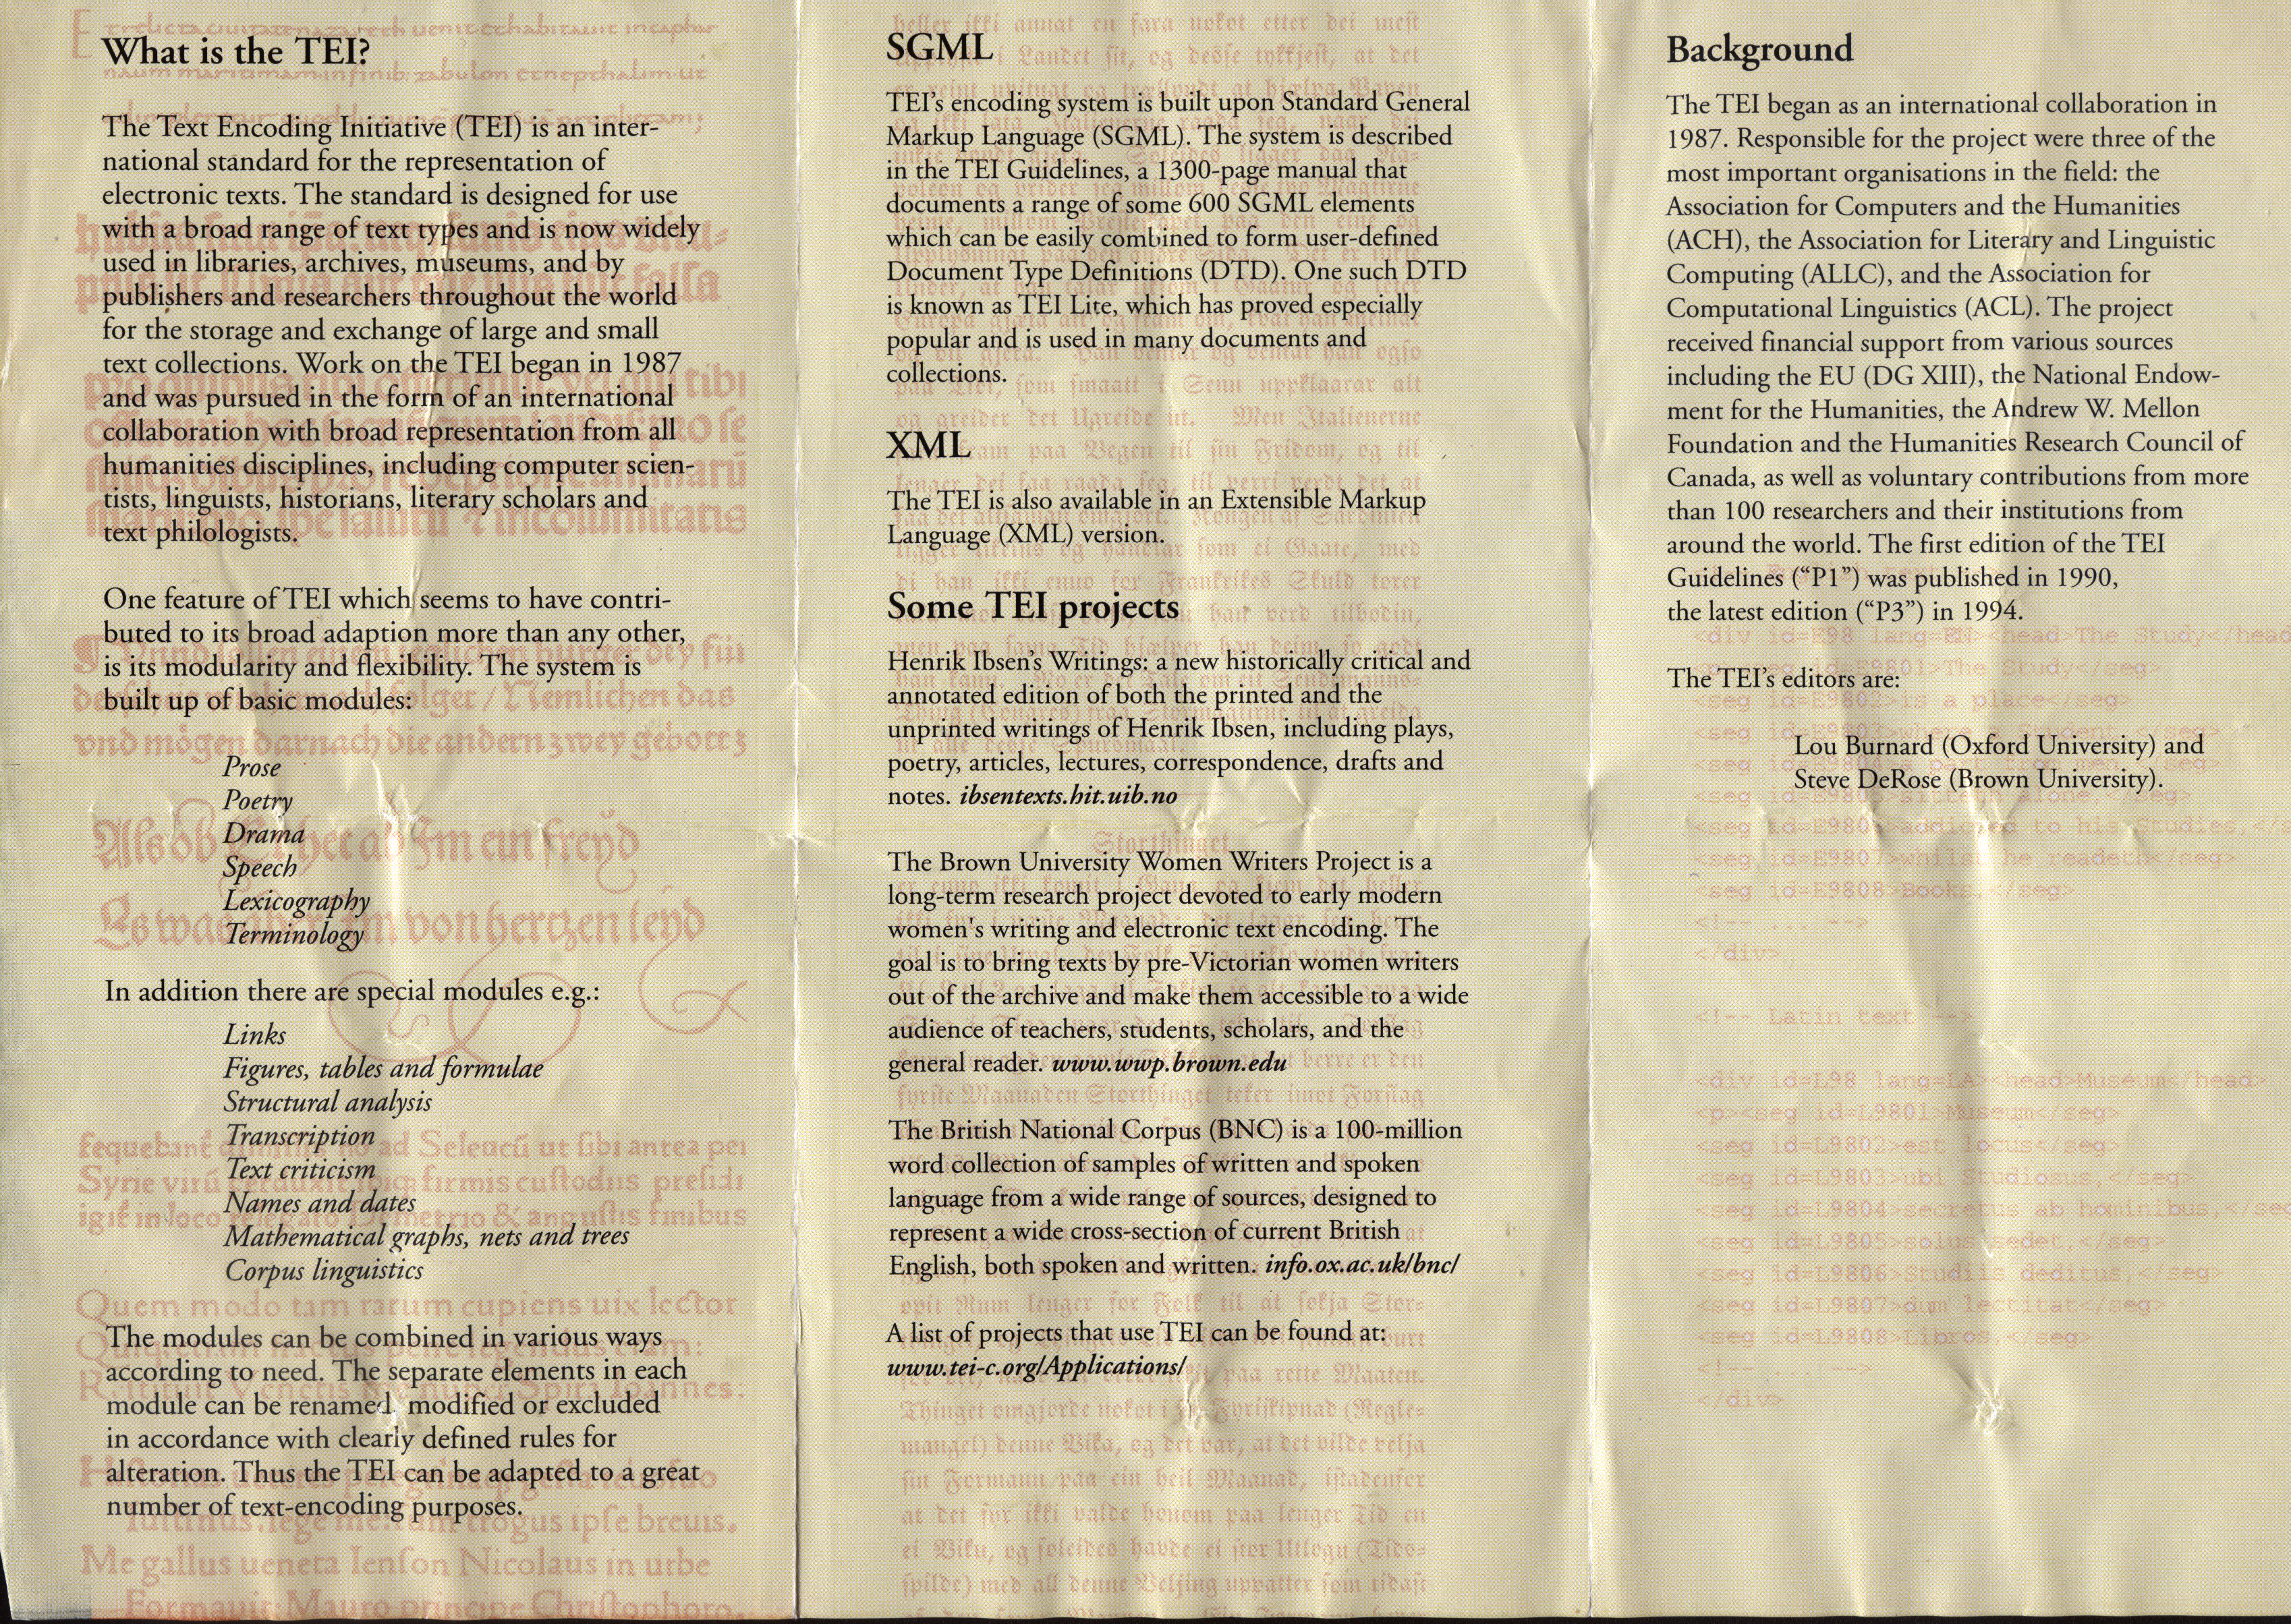 What is the TEI?
The Text Encoding Initiative (TEI) is an inter-
national standard for the representation of
electronic texts. The standard is designed for use
with a broad range of text types and is now widely
used in libraries, archives, museums, and by
publishers and researchers throughout the world
for the storage and exchange of large and small
text collections. Work on the TEI began in 1987
and was pursued in the form of an international
collaboration with broad representation from all
humanities disciplines, including computer scien-
tists, linguists, historians, literary scholars and
text philologists.
One feature of TEI which seems to have contri-
buted to its broad adaption more than any other,
is its modularity and flexibility. The system is
built up of basic modules:
Prose
Poetry
Drama
Speech
Lexicography
Terminology
In addition there are special modules e.g.:
Links
Figures, tables and formulae
Structural analysis
Transcription
Text criticism
Names and dates
Mathematical graphs, nets and trees
Corpus linguistics
The modules can be combined in various ways
according to need. The separate elements in each
module can be renamed, modified or excluded
in accordance with clearly defined rules for
alteration. Thus the TEI can be adapted to a great
number of text-encoding purposes.
Quem modo tam rarum cupiens uix lector
Me gallus ueneta Ienson Nicolaus in urbe
Formauit: Mauro principe Christophoro.
SGML
TEI's encoding system is built upon Standard General
Markup Language (SGML). The system is described
in the TEI Guidelines, a 1300-page manual that
documents a range of some 600 SGML elements
which can be easily combined to form user-defined
Document Type Definitions (DTD). One such DTD
is known as TEI Lite, which has proved especially
popular and is used in many documents and
collections.
XML
The TEI is also available in an Extensible Markup
Language (XML) version.
Some TEI projects
Henrik Ibsen's Writings: a new historically critical and
annotated edition of both the printed and the
unprinted writings of Henrik Ibsen, including plays,
poetry, articles, lectures, correspondence, drafts and
notes. ibsentexts.hit.uib.no
Storthinget
The Brown University Women Writers Project is a
long-term research project devoted to early modern
women's writing and electronic text encoding. The
goal is to bring texts by pre-Victorian women writers
out of the archive and make them accessible to a wide
audience of teachers, students, scholars, and the
general reader. www.wwp.brown.edu
fyrste Maanaden Storthinget teker imot Forslag
The British National Corpus (BNC) is a 100-million
word collection of samples of written and spoken
language from a wide range of sources, designed to
represent a wide cross-section of current British
English, both spoken and written. info.ox.ac.uk/bnc/
A list of projects that use TEI can be found at:
www.tei-c.org/Applications/
mangel) denne Vika, og det var, at det vilde velja
sin Formann paa ein heil Maanad, istadenfor
at det fyr ikki valde honom paa lenger Tid en
ei Viku, og soleides havde ei stor Utlogu (Tids-
spilde) med all denne Veljing uppatter som tidast
Background
The TEI began as an international collaboration in
1987. Responsible for the project were three of the
most important organisations in the field: the
Association for Computers and the Humanities
(ACH), the Association for Literary and Linguistic
Computing (ALLC), and the Association for
Computational Linguistics (ACL). The project
received financial support from various sources
including the EU (DG XIII), the National Endow-
ment for the Humanities, the Andrew W. Mellon
Foundation and the Humanities Research Council of
Canada, as well as voluntary contributions from more
than 100 researchers and their institutions from
around the world. The first edition of the TEI
Guidelines ("P1") was published in 1990,
the latest edition ("P3") in 1994.
<div id=E98 lang=EN><head>The Study</head
The TEI's editors are:
<seg id=E9802>is a place</seg>
Lou Burnard (Oxford University) and
Steve DeRose (Brown University).
<seg id=E9806>addicted to his Studies,</s
<seg id=E9807>whilst he readeth</seg>
<seg id=E9808>Books,</seg>
<!-- ... -->
</div>
<!-- Latin text -->
<div id=L98 lang=LA><head>Museum</head>
<p><seg id=L9801>Museum</seg>
<seg id=L9802>est locus</seg>
<seg id=L9803>ubi Studiosus,</seg>
<seg id=L9804>secretus ab hominibus,</seg
<seg id=L9805>solus sedet,</seg>
<seg id=L9806>Studiis deditus,</seg>
<seg id=L9807>dum lectitat</seg>
<seg id=L9808>Libros,</seg>
<!-- ... -->
</div>